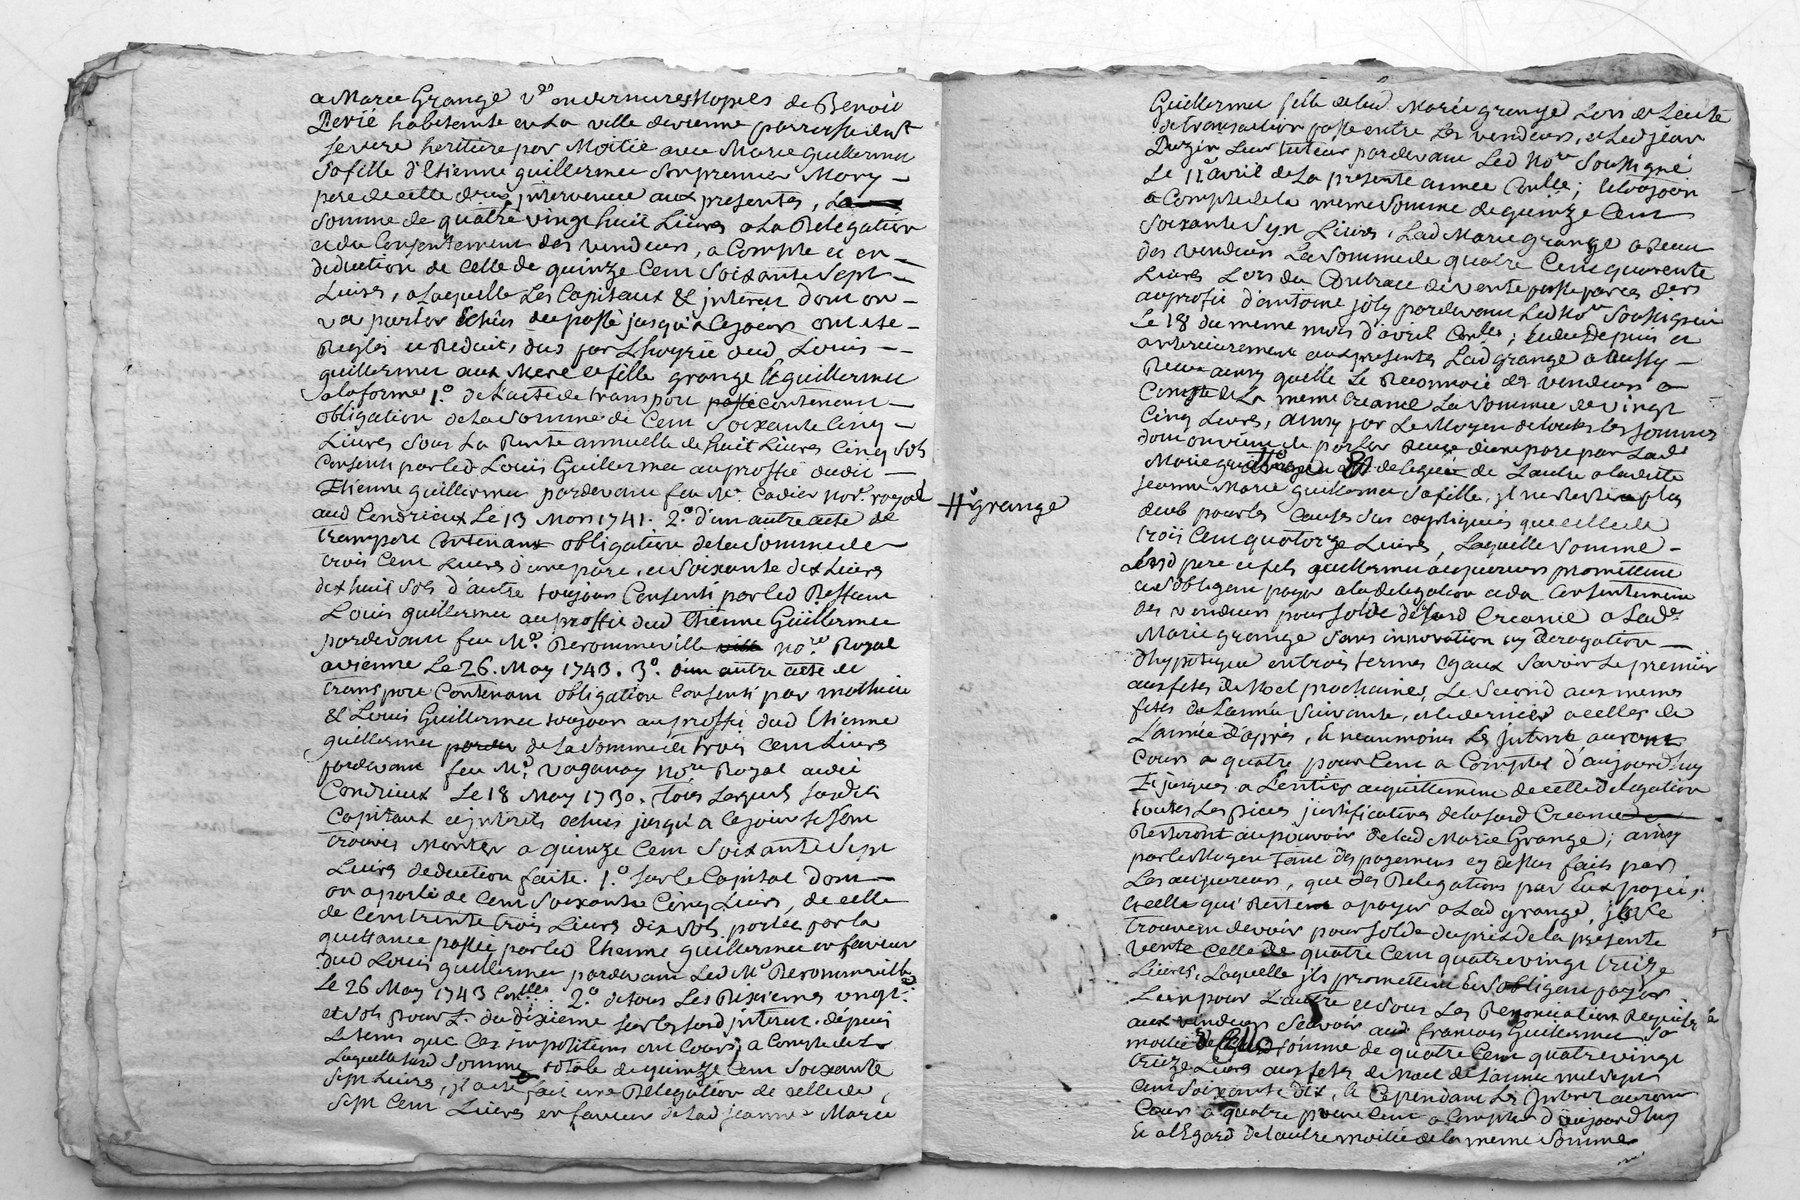 a Marie Grange v.ve en dernieres Nopces de Benoit
Perié habitante en La ville de vienne parroisse de st
severe heritiere par Moitié avec Marie Guillermet
sa fille d'Etienne guillermet son premier Mary
pere de cette intervenue aux presentes, La
somme de quatre vingt huit Livres a La Delegation
et du Consentement des vendeurs, a Compte et en
deduction de Celle de quinze Cent Soixante Sept
Livres, a Laquelle Les Capitaux & jnterets dont on
va parler Echus jusqu'a Cejour ont ete
Reglés et Reduit, dus par L'hoyrie dud Louis
guillermet aux Mere et fille grange & Guillermet
a la forme 1.o de l'acte de transport passé contenant
obligation de la Somme de Cent Soixante Cinq
Livres Sous La Rente annuelle de huit Livres Cinq Sols
Consenti par led Louis Guillermet au proffit dudit
Etienne guillermet pardevant feu Me Cadier nore royal
aud Condrieux Le 13 Mars 1741. 2.o d'un autre acte de
transport Contenant obligation de la Somme de
trois Cent Livres d'une part, et Soixante dix Livres
dix huit Sols d'autre toujours Consenti par led
Louis guillermet au proffit dud Etienne Guillermet
pardevant feu Me Derommeville nore Royal
a vienne Le 26. May 1743. 3.o d'un autre acte de
transport Contenant obligation Consenti par mathieu
& Louis Guillermet toujours au proffit dud Etienne
guillermet de la Somme de trois Cent Livres
pardevant feu Me vaganay nore Royal audit
Condrieux Le 18 May 1730. Tous Lesquels susdits
Capitaux et jnterets echus jusqu'a Cejour se sont
trouvés Monter a quinze Cent Soixante Sept
Livres deduction faite. 1.o sur le Capital dont
on a parlé de Cent Soixante Cinq Livres, de celle
de Cent trente trois Livres dix Sols portée par la
quittance passée par led Etienne guillermet en faveur
dud Louis guillermet pardevant Led Me Derommeville
Le 26 May 1743 Conllé. 2.o de tous Les Dixiemes vingt.e
et sols pour L. du dixieme sur les susd jnterets depuis
Le tems que Ces impositions ont Cours; a Compte de
Laquelle susd Somme totale de quinze Cent Soixante
Sept Livres, jl a eté fait une Delegation de celle de
Sept Cent Livres en faveur de Lad jeanne Marie
# grange
Guillermet fille de lad Marie grange Lors de L'acte
de transaction passé entre Les vendeurs, et Led jean
Duzin Leur tuteur pardevant Led Nore Soussigné
Le 11 avril de La presente année Conllé; cejourd'huy
a Compte de la meme Somme de quinze Cent
Soixante Sept Livres, Lad Marie grange a Receu
des vendeurs La Somme de quatre Cent quarente
Livres Lors du Contract de vente passé par ces ders
au profit d'antoine joly pardevant Led Nore Soussigné
Le 18 du meme mois d'avril Conllé; et du depuis et
anterieurement aux presentes Lad grange a Aussy
Receu ainsy quelle Le Reconnoit des vendeurs a
Compte de La meme Creance La Somme de vingt
Cinq Livres, ainsy par Le Moyen de toutes les sommes
dont on vient de parler Receue d'une part par Lad
Marie # et deleguée de L'autre a ladite
jeanne Marie guillermet Sa fille, jl ne reste plus
deub pour les Causes Sus expliquées que celle de
trois Cent quatorze Livres, Laquelle Somme
Lesd pere et fils guillermet acquereurs promettent
et s'obligent payer a la delegation et du Consentement
des vendeurs pour Solde de susd Creance a Lade
Marie grange Sans innovation ny Derogation
d'hypoteque en trois termes egaux Savoir Le premier
aux fetes de Noel prochaines, Le Second aux memes
fetes de L'année Suivante, et le dernier a celles de
L'année d'apres, & neanmoins Les Jnterets auront
Cours a quatre pour Cent a Compter d'aujourd'huy
Et jusques a L'entier acquittement de cette Delegation
toutes Les pieces justificatives de la susd Creance
Resteront au pouvoir de lad Marie Grange; ainsy
par le Moyen Tant des payemens cy dessus faits par
Les acquereurs, que des Delegations par Eux payées,
et celle qui Restent a payer a Lad grange, jls se
trouvent devoir pour Solde du prix de la presente
vente Celle de quatre Cent quatre vingt treize
Livres, Laquelle jls promettent & s'obligent payer
L'un pour L'autre et Sous Les Renonciations Requises a
aux vendeurs Scavoir aud francois Guillermet Sa
moitié de somme de quatre Cent quatre vingt
treize Livres aux fetes de Noel de L'année mil Sept
Cent Soixante dix, & Cependant Les Jnterets auront
Cours a quatre pour Cent a Compter d'aujourd'huy
Et a L'Egard de l'autre moitié de la meme Somme